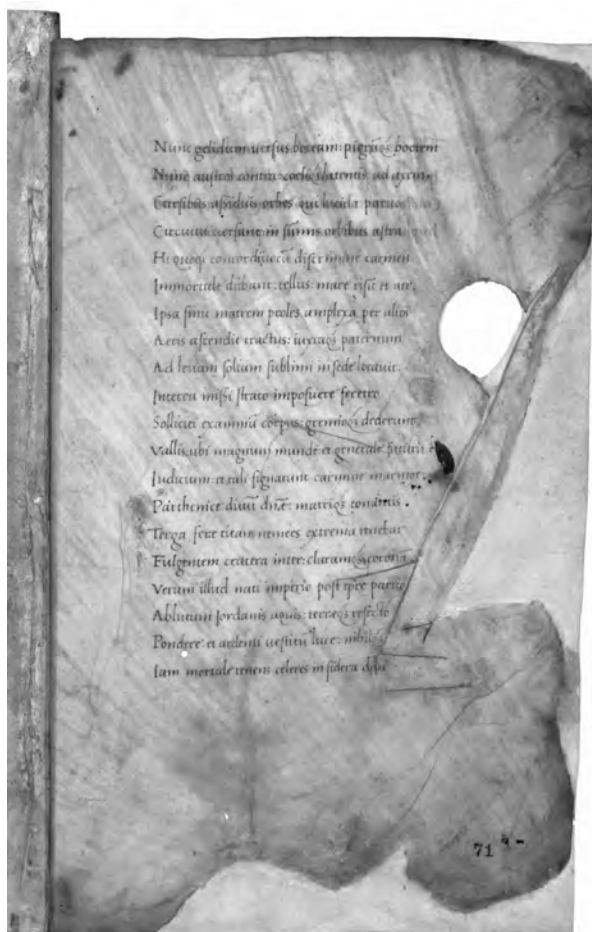 Nunc gelidum uersus boream: pigrūq; booten
Nunc austros contra: coeliq; latentis ad axem
assiduis orbes qui lucida paruos
Circuitu uersant: in sūmis orbibus astra
Hi quoq; concordi uecū discrimine carmen
Immortale dabunt: tellus: mare risit et aer.
Ipsa sinu matrem proles amplexa per altos
Aeris ascendit tractus: iuxtaq; paternum
Ad leuam solium sublimi in sede locauit.
Interea missi strato imposuere feretro
Solliciti examinū corpus: gremioq; dederunt
Vallis: ubi magnum mundi: et generale futurū ē
Iudicium: et tali signarunt carmine marmor.
Parthenice diuū dn̄ē: matrisq; tonantis.
Terga fere titan nemees extrema tenebat
Fulgentem cratera inter: claramq; corona
Verum illud nati imperio post tpre paruo
Ablutum Jordanis aquis: terreq; refecto
Pondere et ardenti uestitū luce: nihilq;
Iam mortale tenens celeres in sidera
71